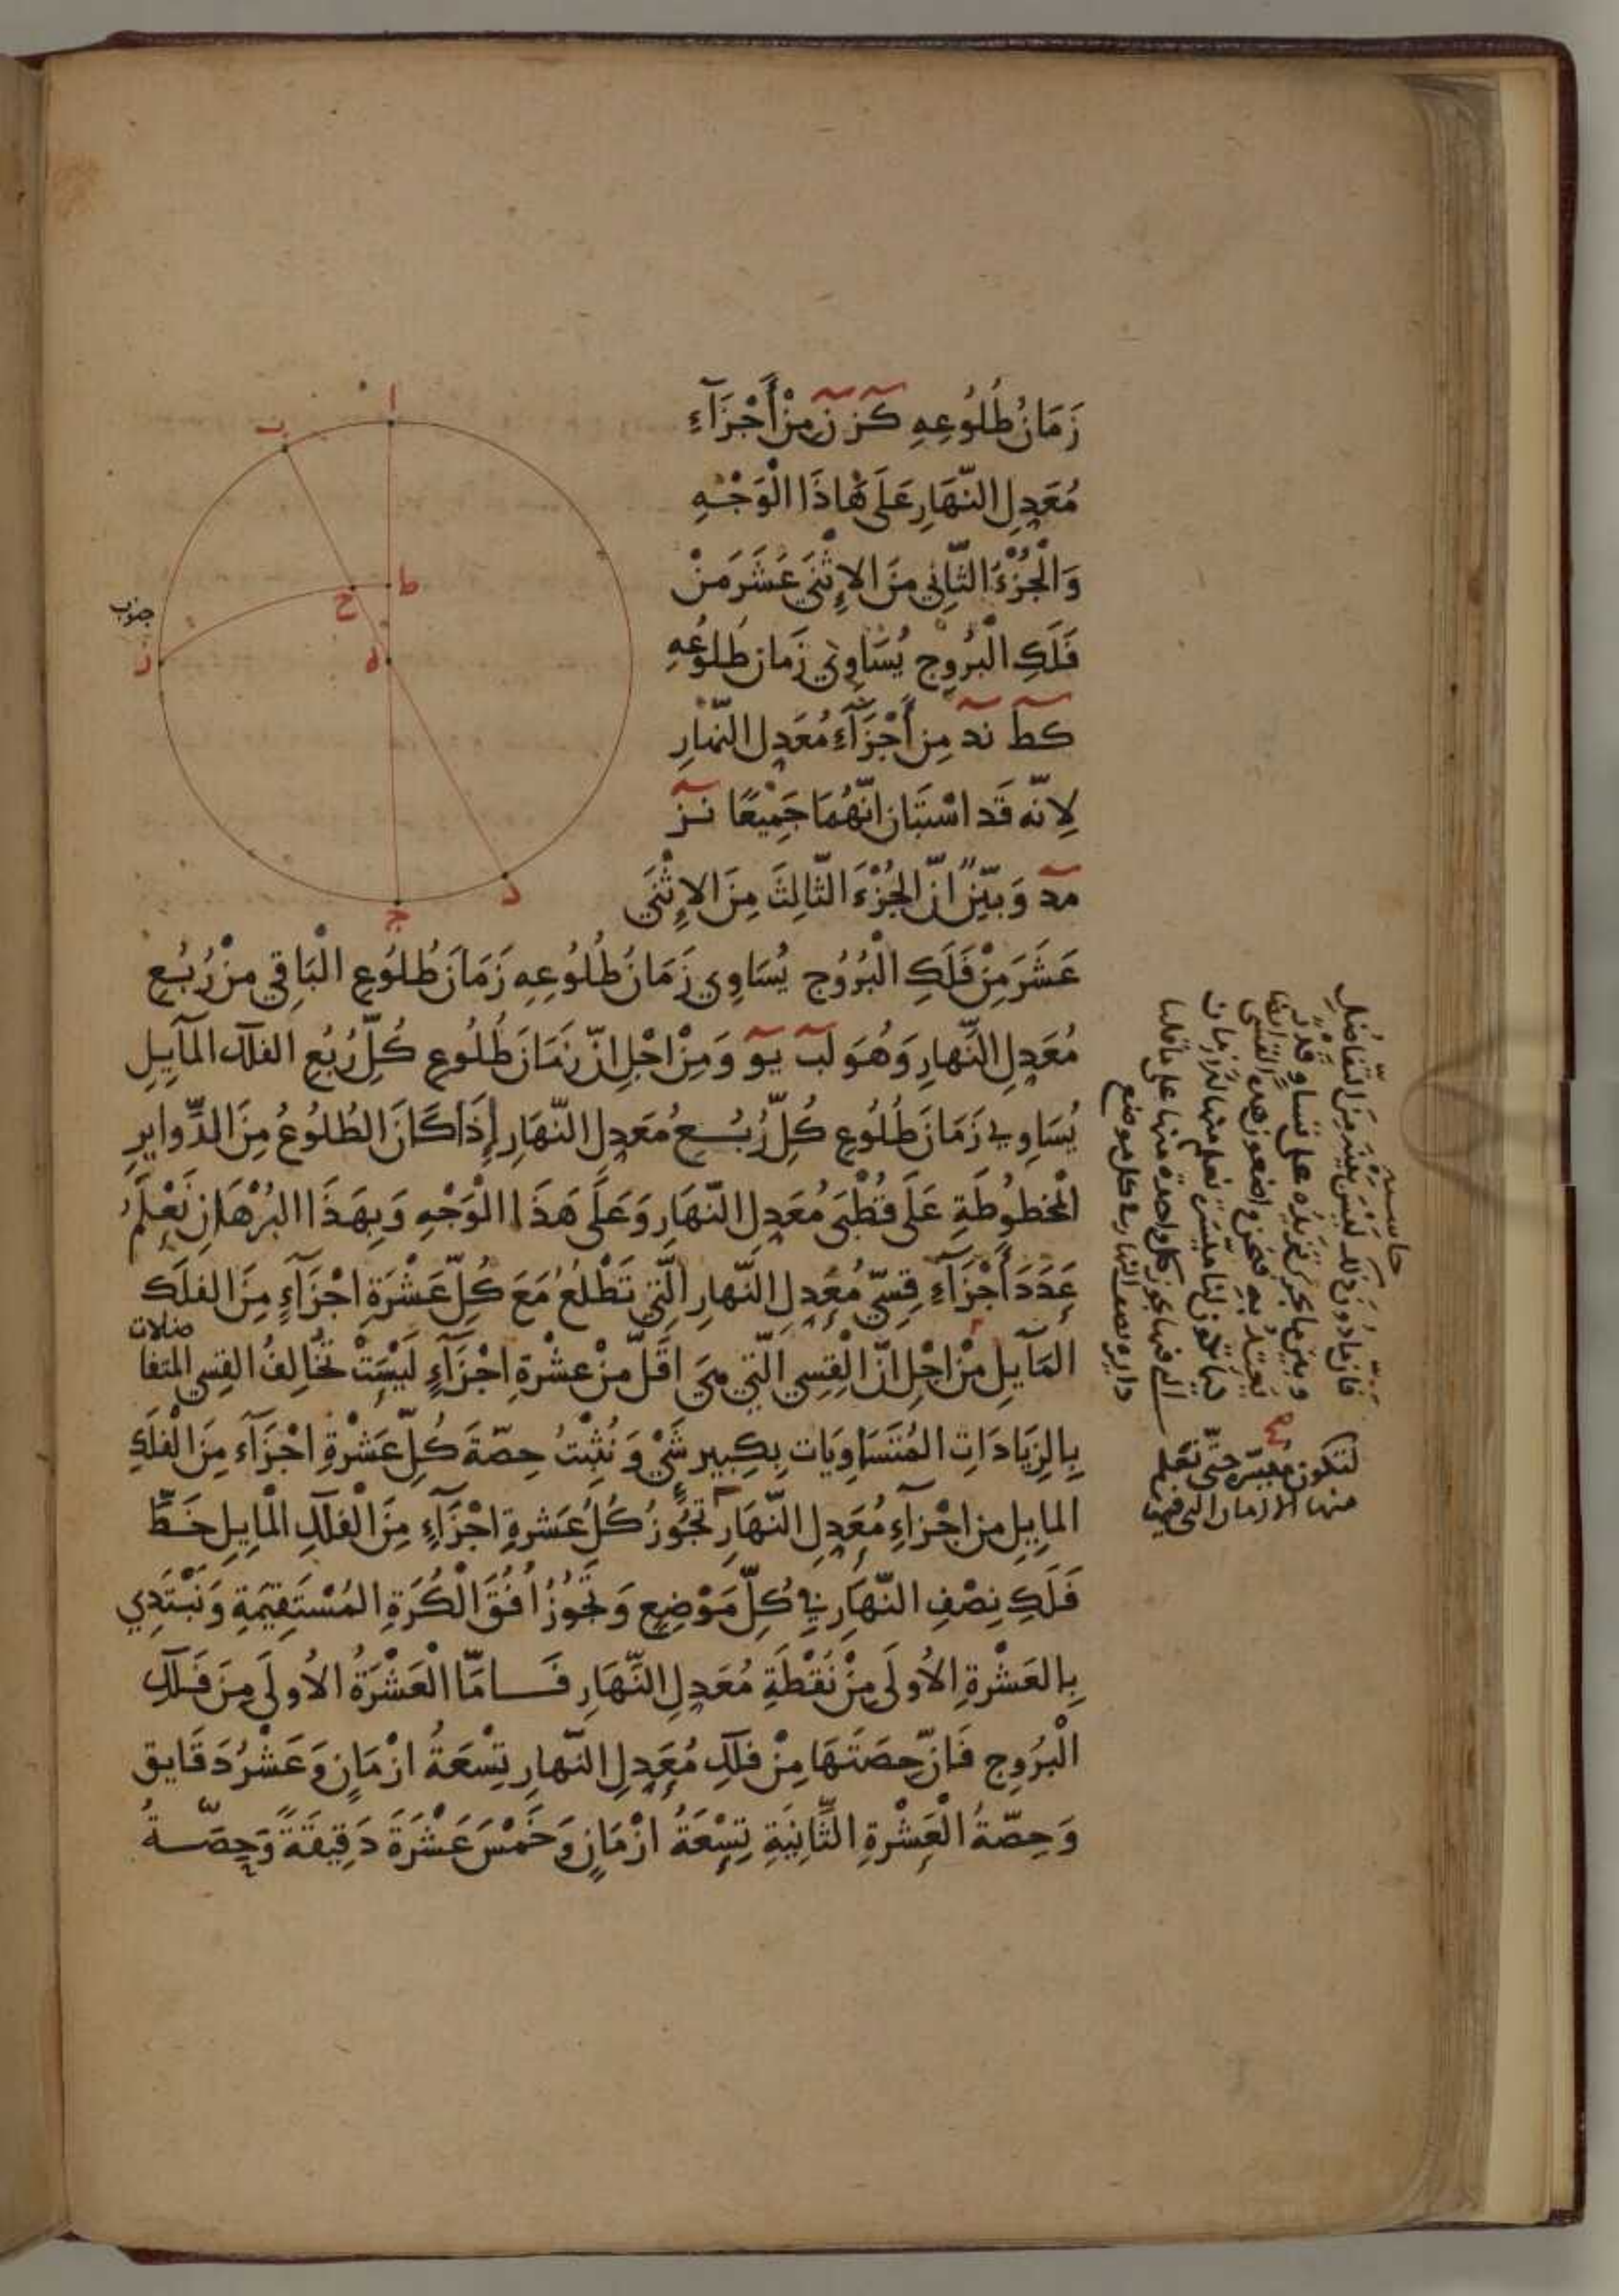 زَمَانُ طُلُوعِهِ كَز نَ مِنْ أَجْزَآءِ
مُعَدِلِ النَّهَارِ عَلَى هَاذَا الْوَجْهِ
وَالْجُزْءَ الثَّانِي مِنَ الإِثْنَي عَشَرَ مِنْ
فَلَكِ الْبُرُوجِ يُسَاوِي زَمان طُلُوعِهِ
كط ند مِن أَجْزَآءِ مُعَدِلِ النَّهَارِ
لِانّه قَد اسْتَبَان انَّهُمَا جَمِيْعًا نز
مد وَبَيِّنٌ انّ الجُزْءَ الثَّالِثَ مِنَ الإِثْنَي
عَشَرَ مِنْ فَلَكِ الْبُرُوُج يُسَاوِي زَمَانُ طُلُوُعِهِ زَمَانَ طُلوُعِ الْبَاقِي مِنْ رُبُعِ
مُعَدِلِ النَّهارِ وَهُوَ لب يو وَمِنْ اجْلِ انّ زَمَانَ طُلُوعِ كُلِّ رُبُعِ الفلك المآيِلِ
يُسَاوِي زَمَانَ طُلُوعِ كُلِّ رُبُعِ مُعَدِلِ النَّهَارِ إِذَا كَانَ الطُلُوُعُ مِنَ الدَّوايِرِ
الْمخطُوطَةِ عَلَى قُطْبَي مُعَدِلِ النَّهَارِ وَعَلَى هَذَا الْوَجْهِ وَبِهَذَا البُرْهَانِ نَعْلَمُ
عَدَدَ أَجْزَآءِ قِسِّي مُعَدِلِ النَّهارِ الَّتِي تَطْلُعُ مَعَ كُلِّ عَشْرَةِ اجْزَآءٍ مِنَ الفلَكِ
المَآيِلِ مِنْ اجْلِ انّ الْقِسِي الَّتِي هِيَ اقَلّ مِنْ عشْرةِ اجْزَآءٍ لَيْسَتْ تُخَالِفُ القِسِي المتفا
ضلات
بِالزِيَادَاتِ المُتَسَاوِيَات بِكَبِيرِ شَيْءٍ وَنُثْبِتُ حِصّةَ كُلِّ عَشْرةِ اجْزَآء مِنَ الْفلَكِ
المايِلِ مِن اجْزآءِ مُعَدِلِ النَّهَارِ تَجُوُزُ كُلُ عَشرةِ اجْزَآءٍ مِنَ الْفلكِ الْمايِلِ خَطَّ
فَلَكِ نِصْفِ النَّهَارِ فِي كُلِّ مَوْضِعٍ وَتَجُوزُ اُفُقَ الْكُرَةِ المُسْتَقِيمَةِ وَنَبْتَدِي
بِالعَشْرةِ الأولَى مِنْ نُقْطَةِ مُعَدِلِ النَّهَارِ فَامّا الْعَشْرَةُ الأولَى مِنَ فَلكِ
الْبُرُوجِ فَانّ حِصَتَهَا مِنْ فلكِ مُعَدِلِ النَّهارِ تِسْعَةُ ازْمَانٍ وَعَشْرُ دَقَايِق
وَحِصّةُ الْعَشْرةِ الثَّانِيَةِ تِسْعَةُ ازْمَانٍ وَخَمْسَ عَشْرَةَ دَقِيقَةً وَحِصَّةُ
ا
ب
ط
ح
ه
ز
جنوب
د
ج
حاشية
فان مادون ذلك ليس بينه من التفاضل
وبين ما يجري تزيده على تساو قدر
يعتد به فنحن واضعون هذه القسي
دايرة نصف النهار في كل موضع
لتكون ميسّرة حتى نعلم
منها الازمان التي فيها